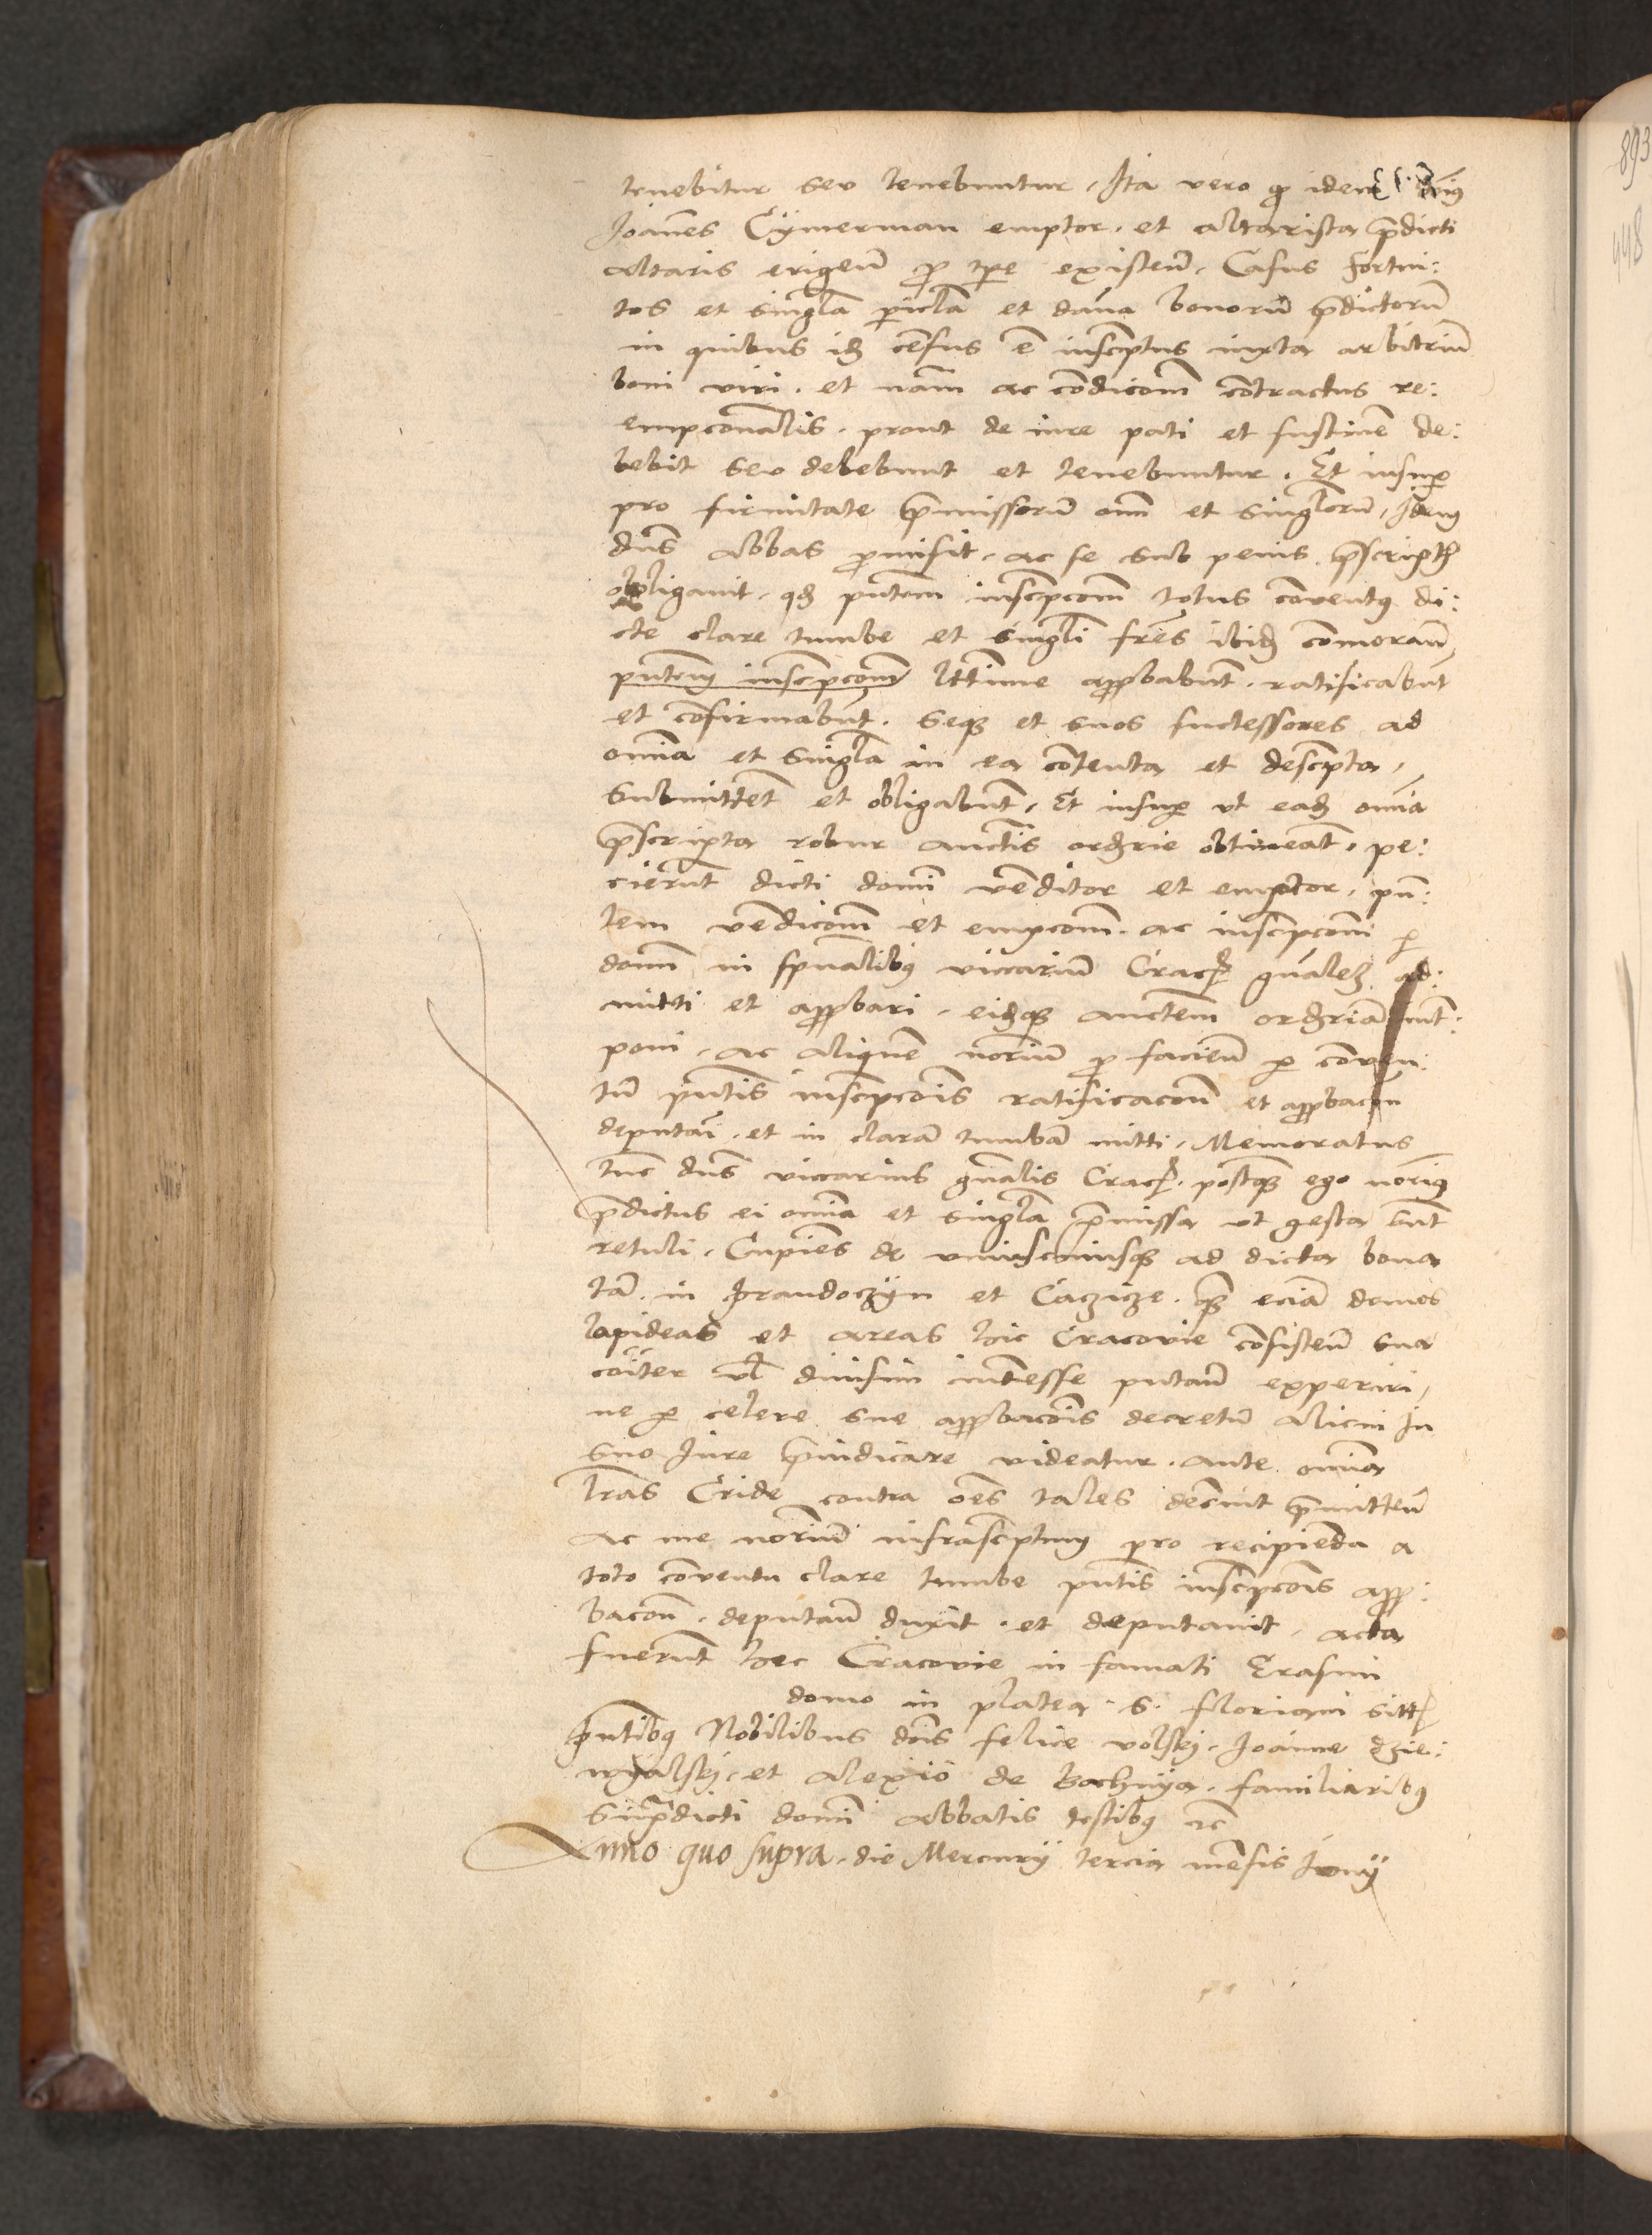 tenebitur seu tenebuntur. Ita vero q idem dns
Joannes Cymerman emptor. et altarista p̄dicti
altaris erigeñ p tp̄e existeñ. Casus fortui:
tos et singl̄a picl̄a et dāna bonorū p̄dictorū
in quibus id census ē inscriptus iuxta arbitriū
boni viri. et nām ac condicōm contractus re:
empconalis. prout de iure pati et sustinē de:
bebit seu debebunt et tenebuntur. Et insup
pro firmitate p̄missorū oīm et singlorū. Idem
dns abbas pmisit. ac se sub penis p̄scriptis
obligauit. qd pntem inscripcōm totus conventus di:
cte clare tumbe et singli frēs ibid commoran̄
pntem inscripcom lttime approbabunt. ratificabunt
et confirmabunt. seqz et suos successores ad
omnia et singla in ea contenta et descripta.
submittent et obligabunt. Et insup vt ead omnia
p̄scripta robur auctis ordrie obtineant. pe:
cierunt dicti domi venditor et emptor. pn̄:
tem vendicōm et empcōm. ac inscripcōm p
domn in spualibus vicarium Crac gnalez. ad:
mitti et approbari. eidqz auctem ordriam int:
poni. ac aliquem norium p facien̄ p conven:
tū pntis inscripcōis ratificacōm et approbacōn
deputari. et in clarā tumbā mitti. Memoratus
tunc dns vicarius gnalis Crac. postqz ego norius
p̄dictus ei omnia et singla p̄missa vt gesta sunt
retuli. Cupiens de vniuscuiusqz ad dicta bona
tā in prandoczyn et Caczicze. qz eciā domos
lapideas et areas hic Cracovie consisteñ sua
coīter vl diuisim interesse putan̄ experiri.
ne p celere sue approbacōis decretū alicui in
suo Jure p̄iudicare videatur. ante omnia
lrās Cride contra oēs tales decreuit p̄mitteñ
ac me norium infrascriptum pro recipienda a
toto conventu clare tumbe pntis inscripcois appro:
bacōn. deputan̄ duxit. et deputauit. acta
fuerunt hec Cracovie in famati Erasmi
domo in platea. S. floriani sitt
pntibus Nobilibus dnis felice volski. Joanne dzie:
wyalski. et alexio de Bochnya. familiaribus
supradicti domi abbatis testibus rc
Anno quo supra. die Mercurij tercia mensis Junij
893
448